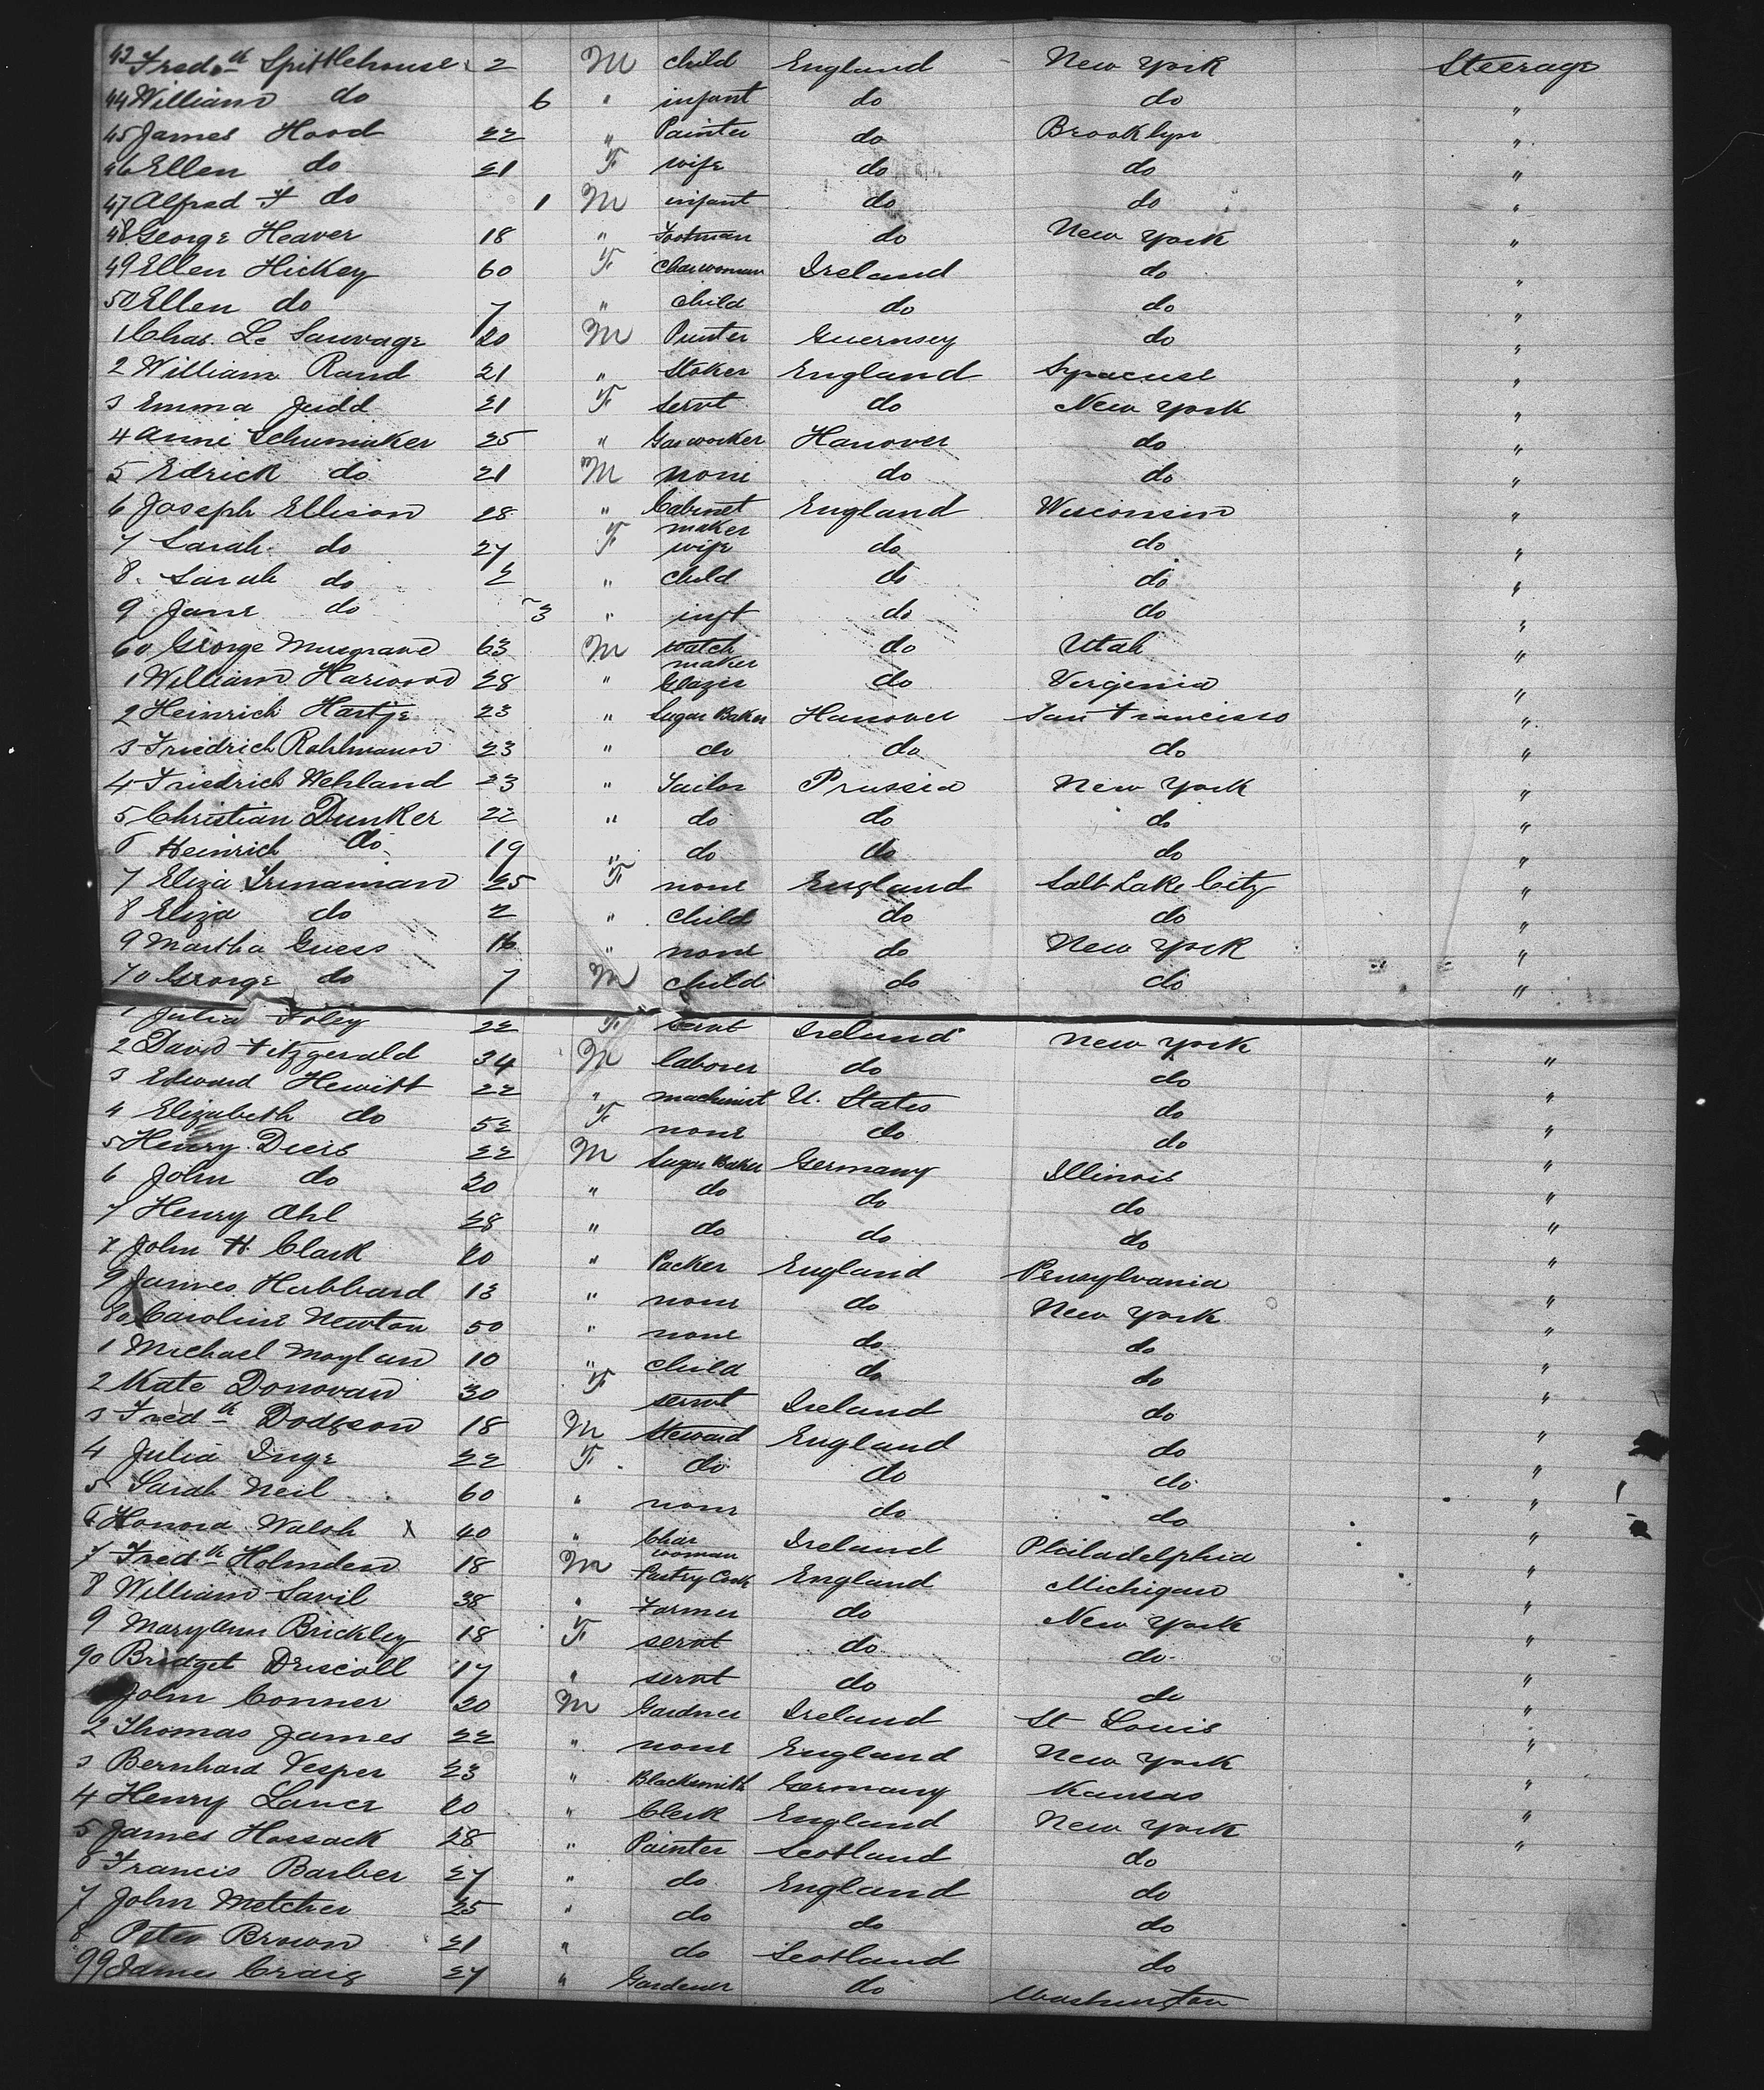 43 Fredk Spittlehouse 2 M child England New York Steerage
44 William do 6 " infant do do "
45 James Hood 22 " Painter do Brooklyn "
46 Ellen do 21 F wife do do "
47 Alfred F do 1 M infant do do "
48 George Heaver 18 " Footman do New York "
49 Ellen Hickey 60 F Charwoman Ireland do "
50 Ellen do 7 " child do do "
1 Chas. Le Sauvage 20 M Printer Guernsey do "
2 William Rand 21 " Stoker England Syracuse "
3 Emma Judd 21 F Servt do New York "
4 Anne Schumaker 25 " Gasworker Hanover do "
5 Edrick do 21 M none do do "
6 Joseph Ellison 28 " Cabinet maker England Wisconsin "
7 Sarah do 27 F wife do do "
8 Sarah do 2 " child do do "
9 Jane do 3 " inft do do "
60 George Musgrave 63 M watch maker do Utah "
1 William Harwood 28 " Glazier do Virginia "
2 Heinrich Hartje 23 " Sugar Baker Hanover San Francisco "
3 Friedrich Rahlmann 23 " do do do "
4 Friedrich Wehland 23 " Tailor Prussia New York "
5 Christian Dunker 22 " do do do "
6 Heinrich do 19 " do do do "
7 Eliza Trenaman 25 F none England Salt Lake City "
8 Eliza do 2 " child do do "
9 Martha Guess 16 " none do New York "
70 George do 7 M child do do "
1 Julia Foley 22 F servt Ireland New York
2 David Fitzgerald 34 M laborer do do "
3 Edward Hewitt 22 " machinist U. States do "
4 Elizabeth do 52 F none do do "
5 Henry Deers 22 M Sugar Baker Germany Illinois "
6 John do 20 " do do do "
7 Henry Ahl 28 " do do do "
8 John H. Clark 20 " Packer England Pensylvania "
9 James Hubbard 13 " none do New York "
80 Caroline Newton 50 " none do do "
1 Michael Moylan 10 " child do do "
2 Kate Donovan 30 F servt Ireland do "
3 Fredk Dodgson 18 M Steward England do "
4 Julia Inge 22 F do do do "
5 Sarah Neil 60 " none do do "
6 Honora Walsh X 40 " Char woman Ireland Philadelphia "
7 Fredk Holmden 18 M Pastry Cook England Michigan "
8 William Savil 38 " Farmer do New York "
9 Mary Ann Brickley 18 F servt do do "
90 Bridget Driscoll 17 " servt do do "
John Conner 20 M Gardner Ireland St Louis "
2 Thomas James 22 " none England New York "
3 Bernhard Vesper 23 " Blacksmith Germany Kansas "
4 Henry Lance 20 " Clerk England New York "
5 James Hossack 28 " Painter Scotland do "
6 Francis Barber 27 " do England do
7 John Metcher 25 " do do do
8 Peter Brown 21 " do Scotland do
99 James Craig 27 " Gardener do Washington